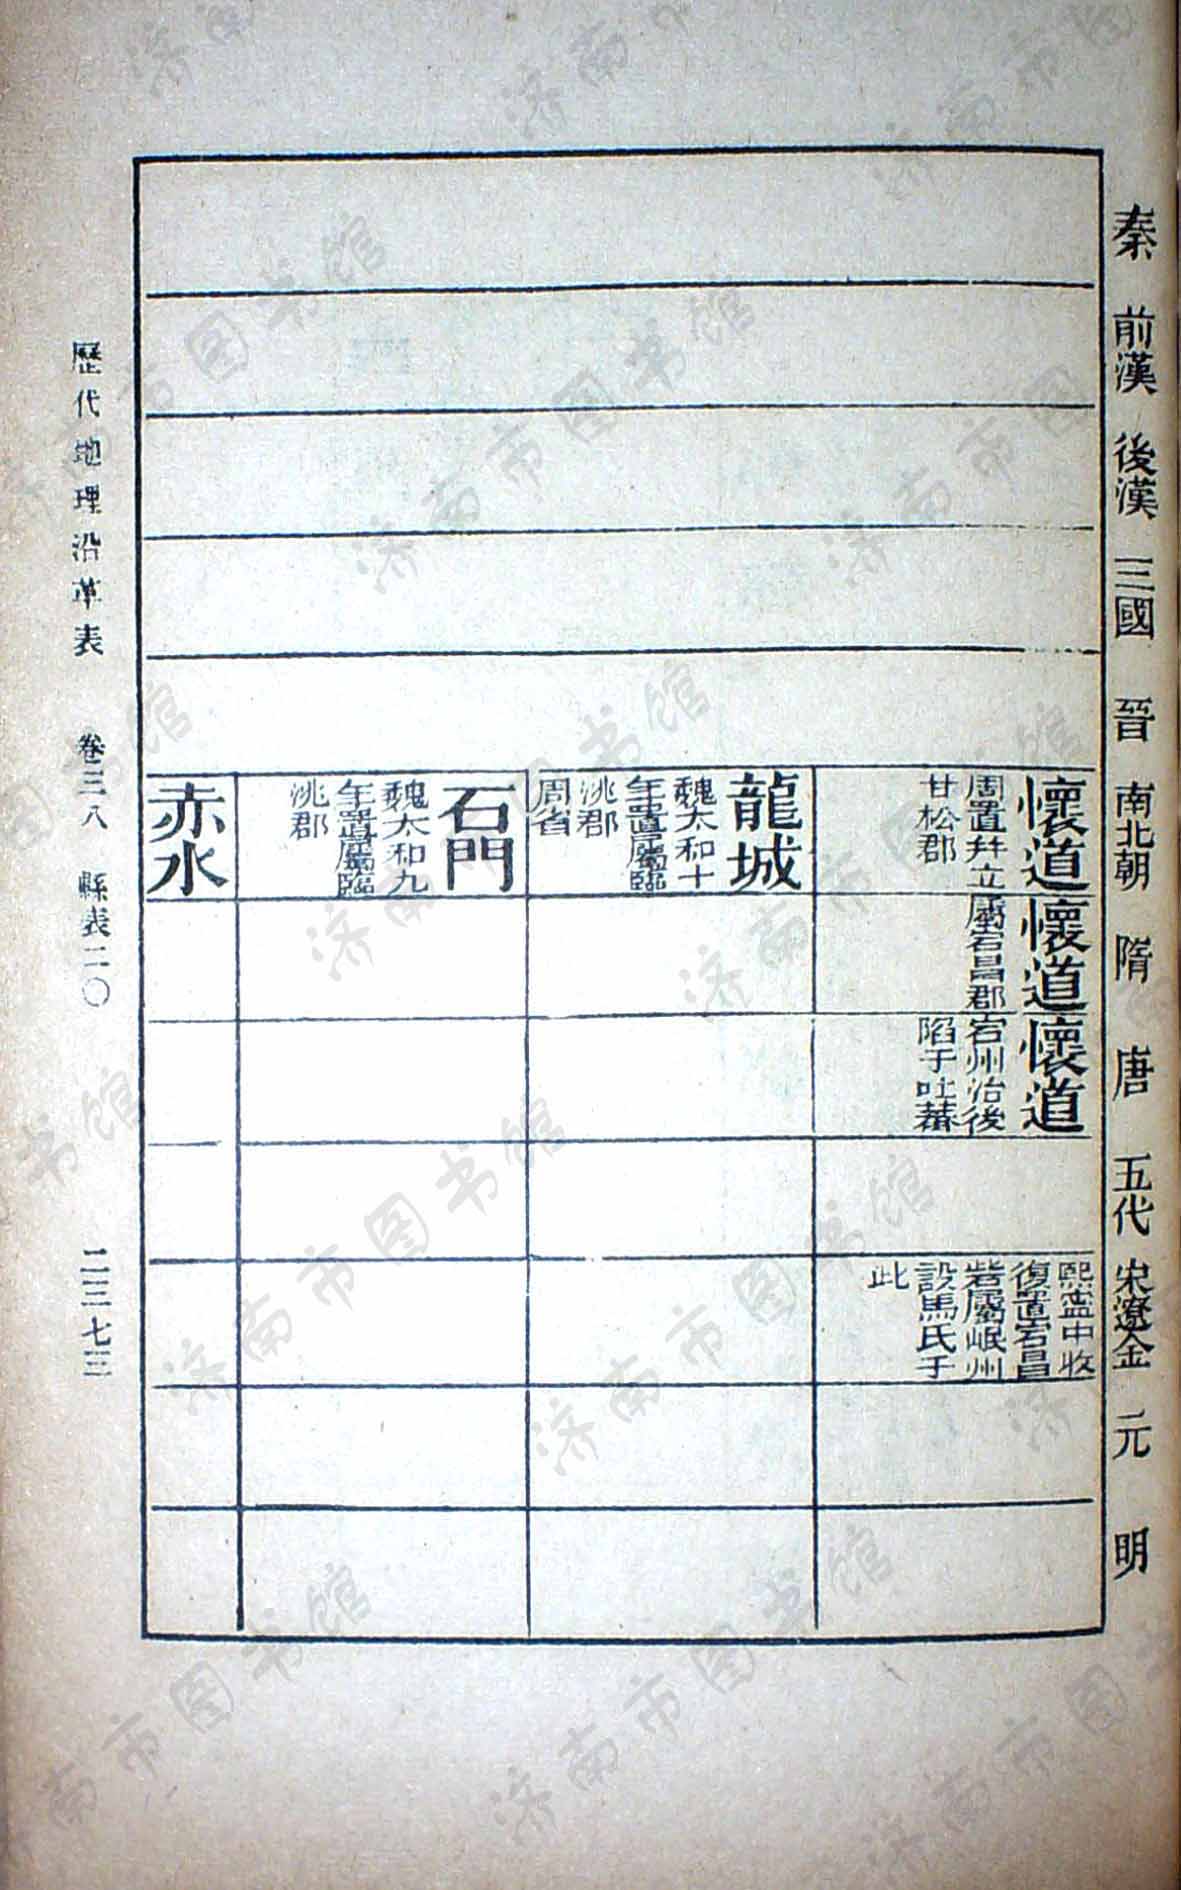 秦　前漢　後漢　三國　晉　南北朝　隋　唐　五代　宋遼金　元　明
懷道
周置幷立
甘松郡
懷道
屬宕昌郡
懷道
宕州治後
陷于吐蕃
熙寧中收
復置宕昌
砦屬岷州
設馬氏于
此
龍城
魏太和十
年置屬臨
洮郡
周省
石門
魏太和九
年置屬臨
洮郡
赤水
歷代地理沿革表　卷三八　縣表二〇　二三七三
济南市图书馆